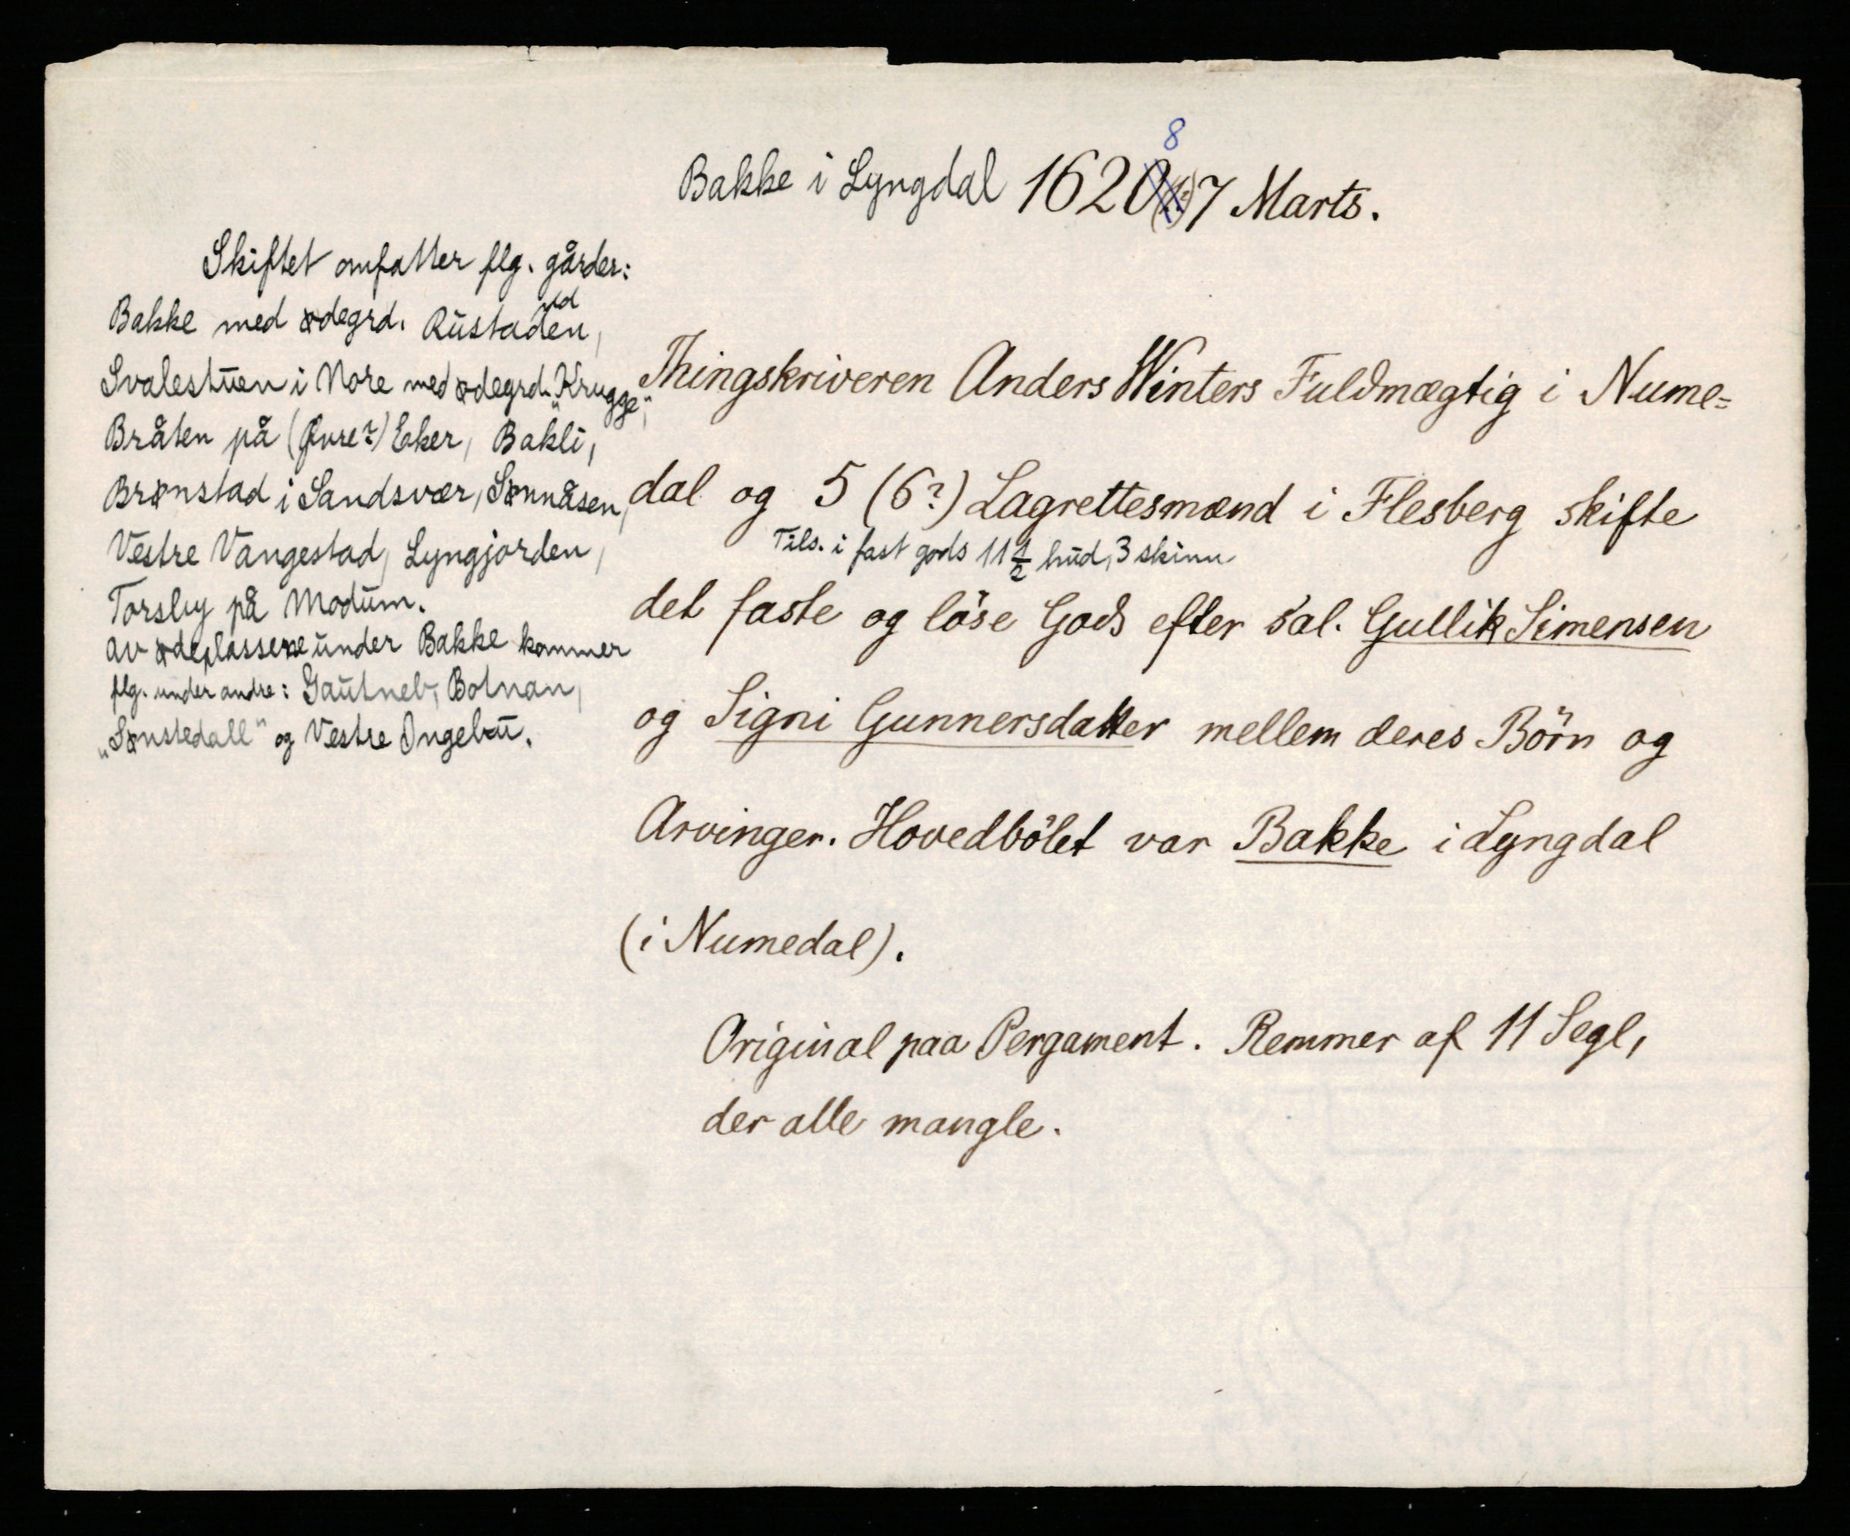 8
Bakke i Lyngdal 1620(1?) 7 Marts.
Skiftet omfatter flg. gårder:
Bakke med ødegrd. Rustaden,
ud
Svalestuen i Nore med ødegrd. "Krugge",
Bråten på (Øvre?) Eker, Bakli,
Brønstad i Sandsvær, Sønnåsen,
Vestre Vangestad, Lyngjorden,
Torsby på Modum.
Av ødeplassene under Bakke kommer
flg. under andre: Gautneb, Botnan,
"Sønstedall" og Vestre Ingebu.
Thingskriveren Anders Winters Fuldmægtig i Nume=
dal og 5 (6?) Lagrettesmænd i Flesberg skifte
Tils. i fast gods 11 1/2 hud, 3 skinn
det faste og löse Gods efter sal. Gullik Simensen
og Signi Gunnersdatter mellem deres Börn og
Arvinger. Hovedbölet var Bakke i Lyngdal
(i Numedal).
Original paa Pergament. Remmer af 11 Segl,
der alle mangle.